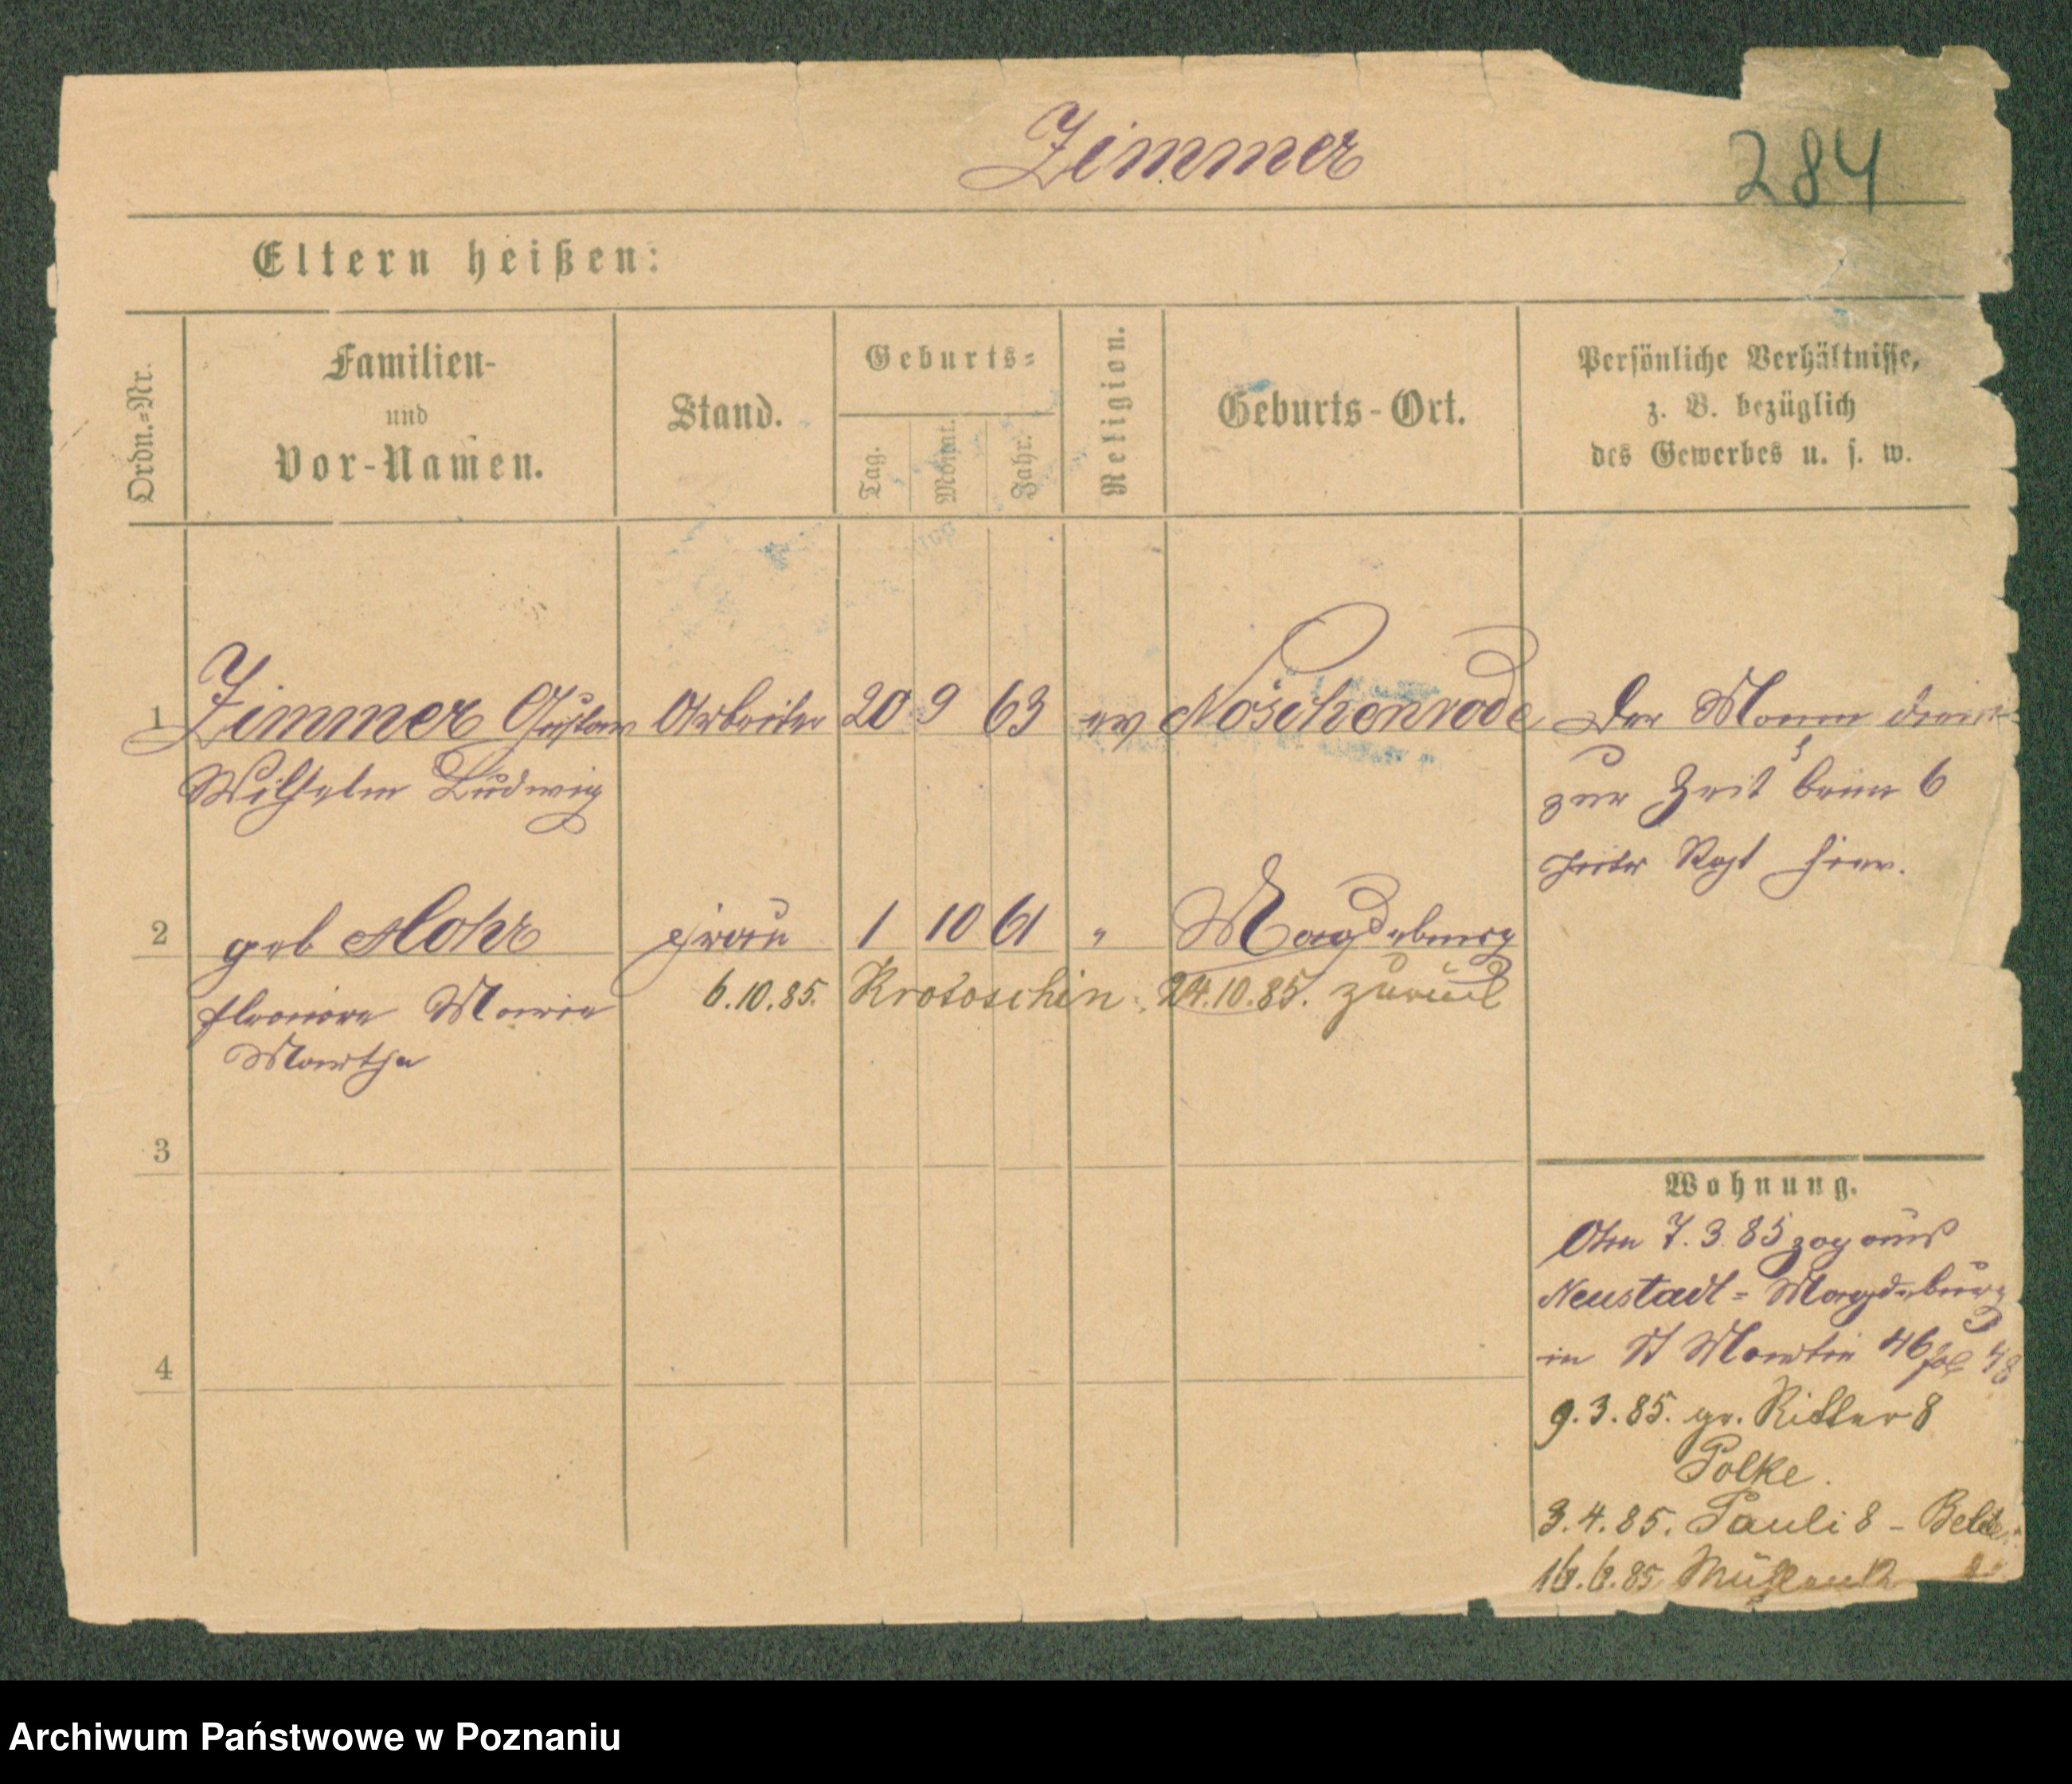 Zimmer
284
Eltern heißen:
Ordn.=Nr.
Familien-
und
Vor-Namen.
Stand.
Geburts=
Tag.
Monat.
Jahr.
Religion.
Geburts-Ort.
Persönliche Verhältnisse,
z. B. bezüglich
des Gewerbes u. s. w.
1 Zimmer Gustav Arbeiter 20 9 63 ev Nöschenrode
Wilhelm Ludwig
Der Mann dient
zur Zeit beim 6
Regt hier.
2 geb Mohr Frau 1 10 61 " Magdeburg
6.10.85. Krotoschin. 24.10.85. zurück
Eleonore Marie
Martha
3
4
Wohnung.
Am 7.3.85 zog aus
Neustadt=Magdeburg
in St Martin 46
9.3.85. gr. Ritter 8
Polke.
3.4.85. Pauli 8 -
16.6.85 Mühlen 12
Archiwum Państwowe w Poznaniu